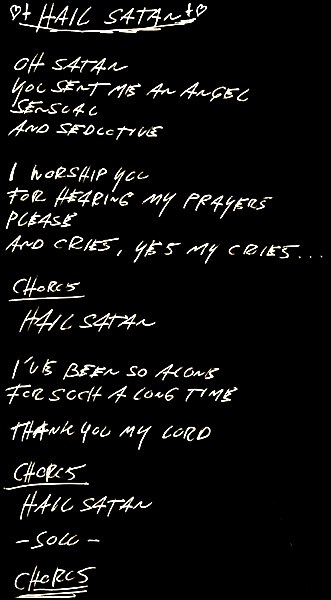 ♡† HAIL SATAN †♡
OH SATAN
YOU SENT ME AN ANGEL
SENSUAL
AND SEDUCTIVE
I WORSHIP YOU
FOR HEARING MY PRAYERS
PLEASE
AND CRIES, YES MY CRIES...
CHORUS
HAIL SATAN
I'VE BEEN SO ALONE
FOR SUCH A LONG TIME
THANK YOU MY LORD
CHORUS
HAIL SATAN
-SOLO-
CHORUS